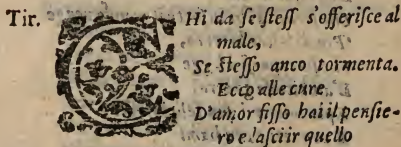 Tir. CHi da se steſſ s'offeriſce al
male,
Se steſſo anco tormenta.
Ecco alle cure
D'amor fiſſo hai il penſie-
ro e laſci ir quello